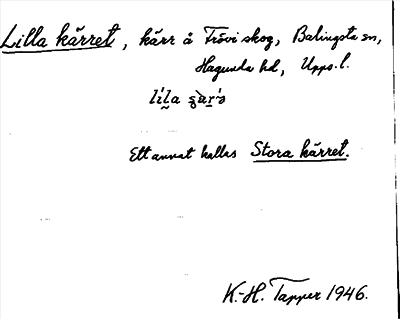 Lilla kärret, kärr å Frövi skog, Balingsta sn,
Hagunda hd, Upps. l.
Ett annat kallas Stora kärret.
K.-H. Tapper 1946.